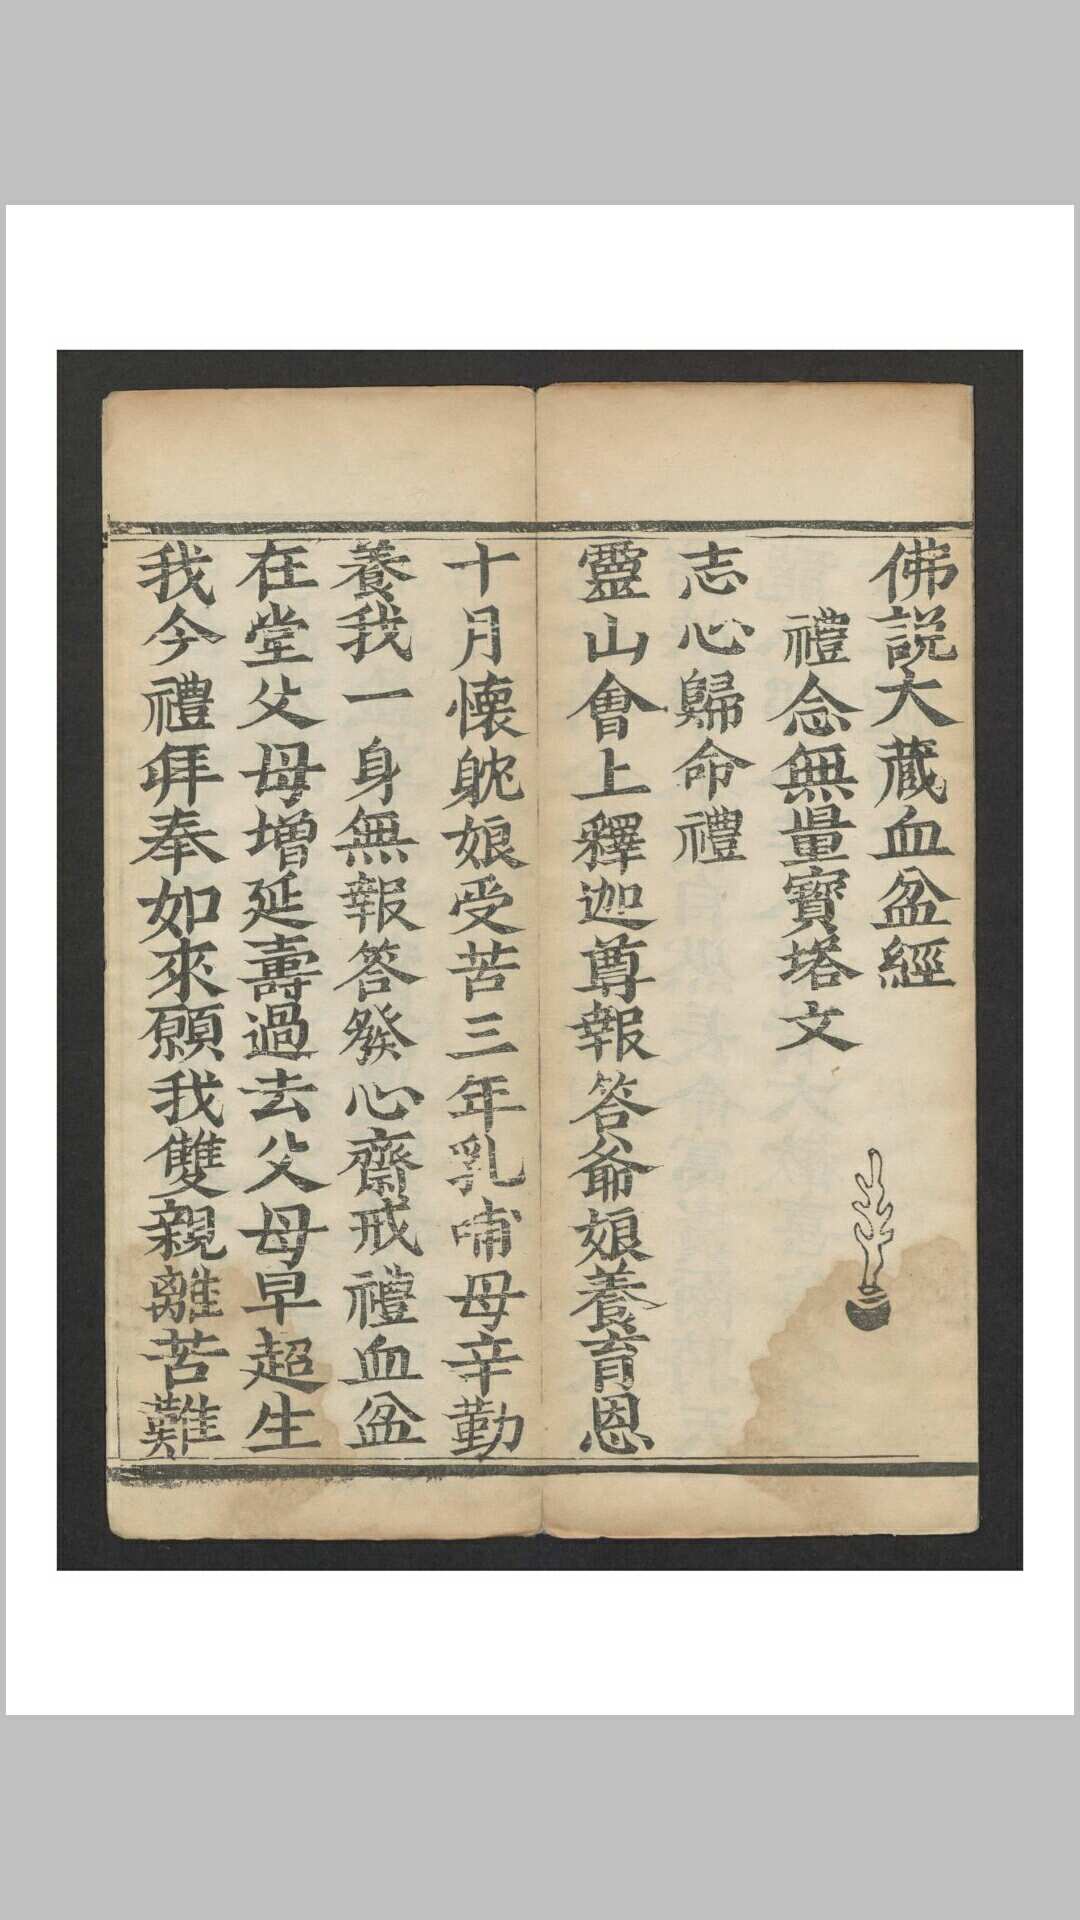 佛説大藏血盆經
禮念無量寶塔文
志心歸命禮
靈山會上釋迦尊報答爺娘養育恩
十月懷躭娘受苦三年乳哺母辛勤
養我一身無報答發心齋戒禮血盆
在堂父母增延壽過去父母早超生
我今禮拜奉如來願我雙親離苦難